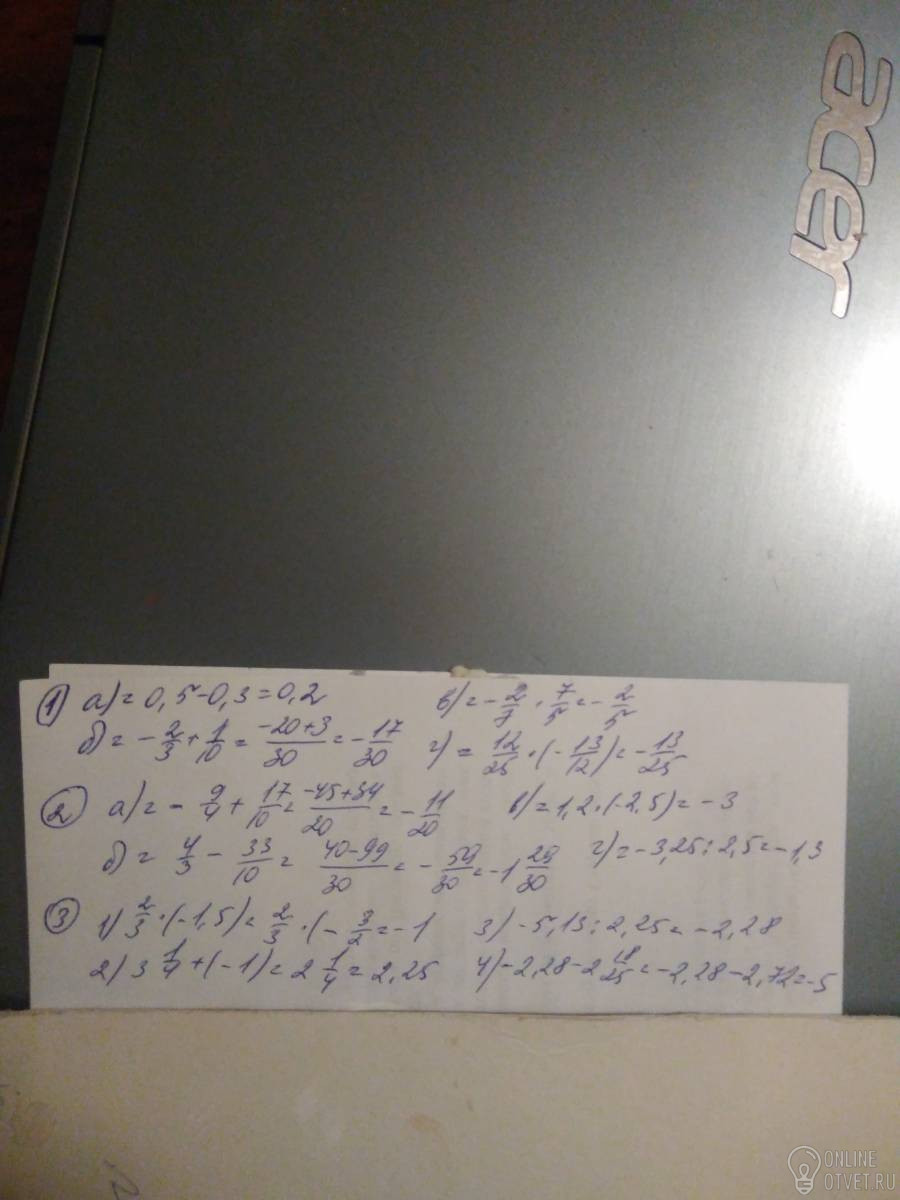 acer
1) а) = 0,5-0,3=0,2 в) = -2/7 · 7/5 = -2/5
б) = -2/3 + 1/10 = (-20+3)/30 = -17/30 г) = 12/25 · (-13/12) = -13/25
2) а) = -9/4 + 17/10 = (-45+34)/20 = -11/20 в) = 1,2·(-2,5) = -3
б) = 4/3 - 33/10 = (40-99)/30 = -59/30 = -1 29/30 г) = -3,25:2,5 = -1,3
3) 1) 2/3 · (-1,5) = 2/3 · (-3/2 = -1 3) -5,13:2,25 = -2,28
2) 3 1/4 + (-1) = 2 1/4 = 2,25 4) -2,28-2 18/25 = -2,28-2,72=-5
ONLINE
OTVET.RU